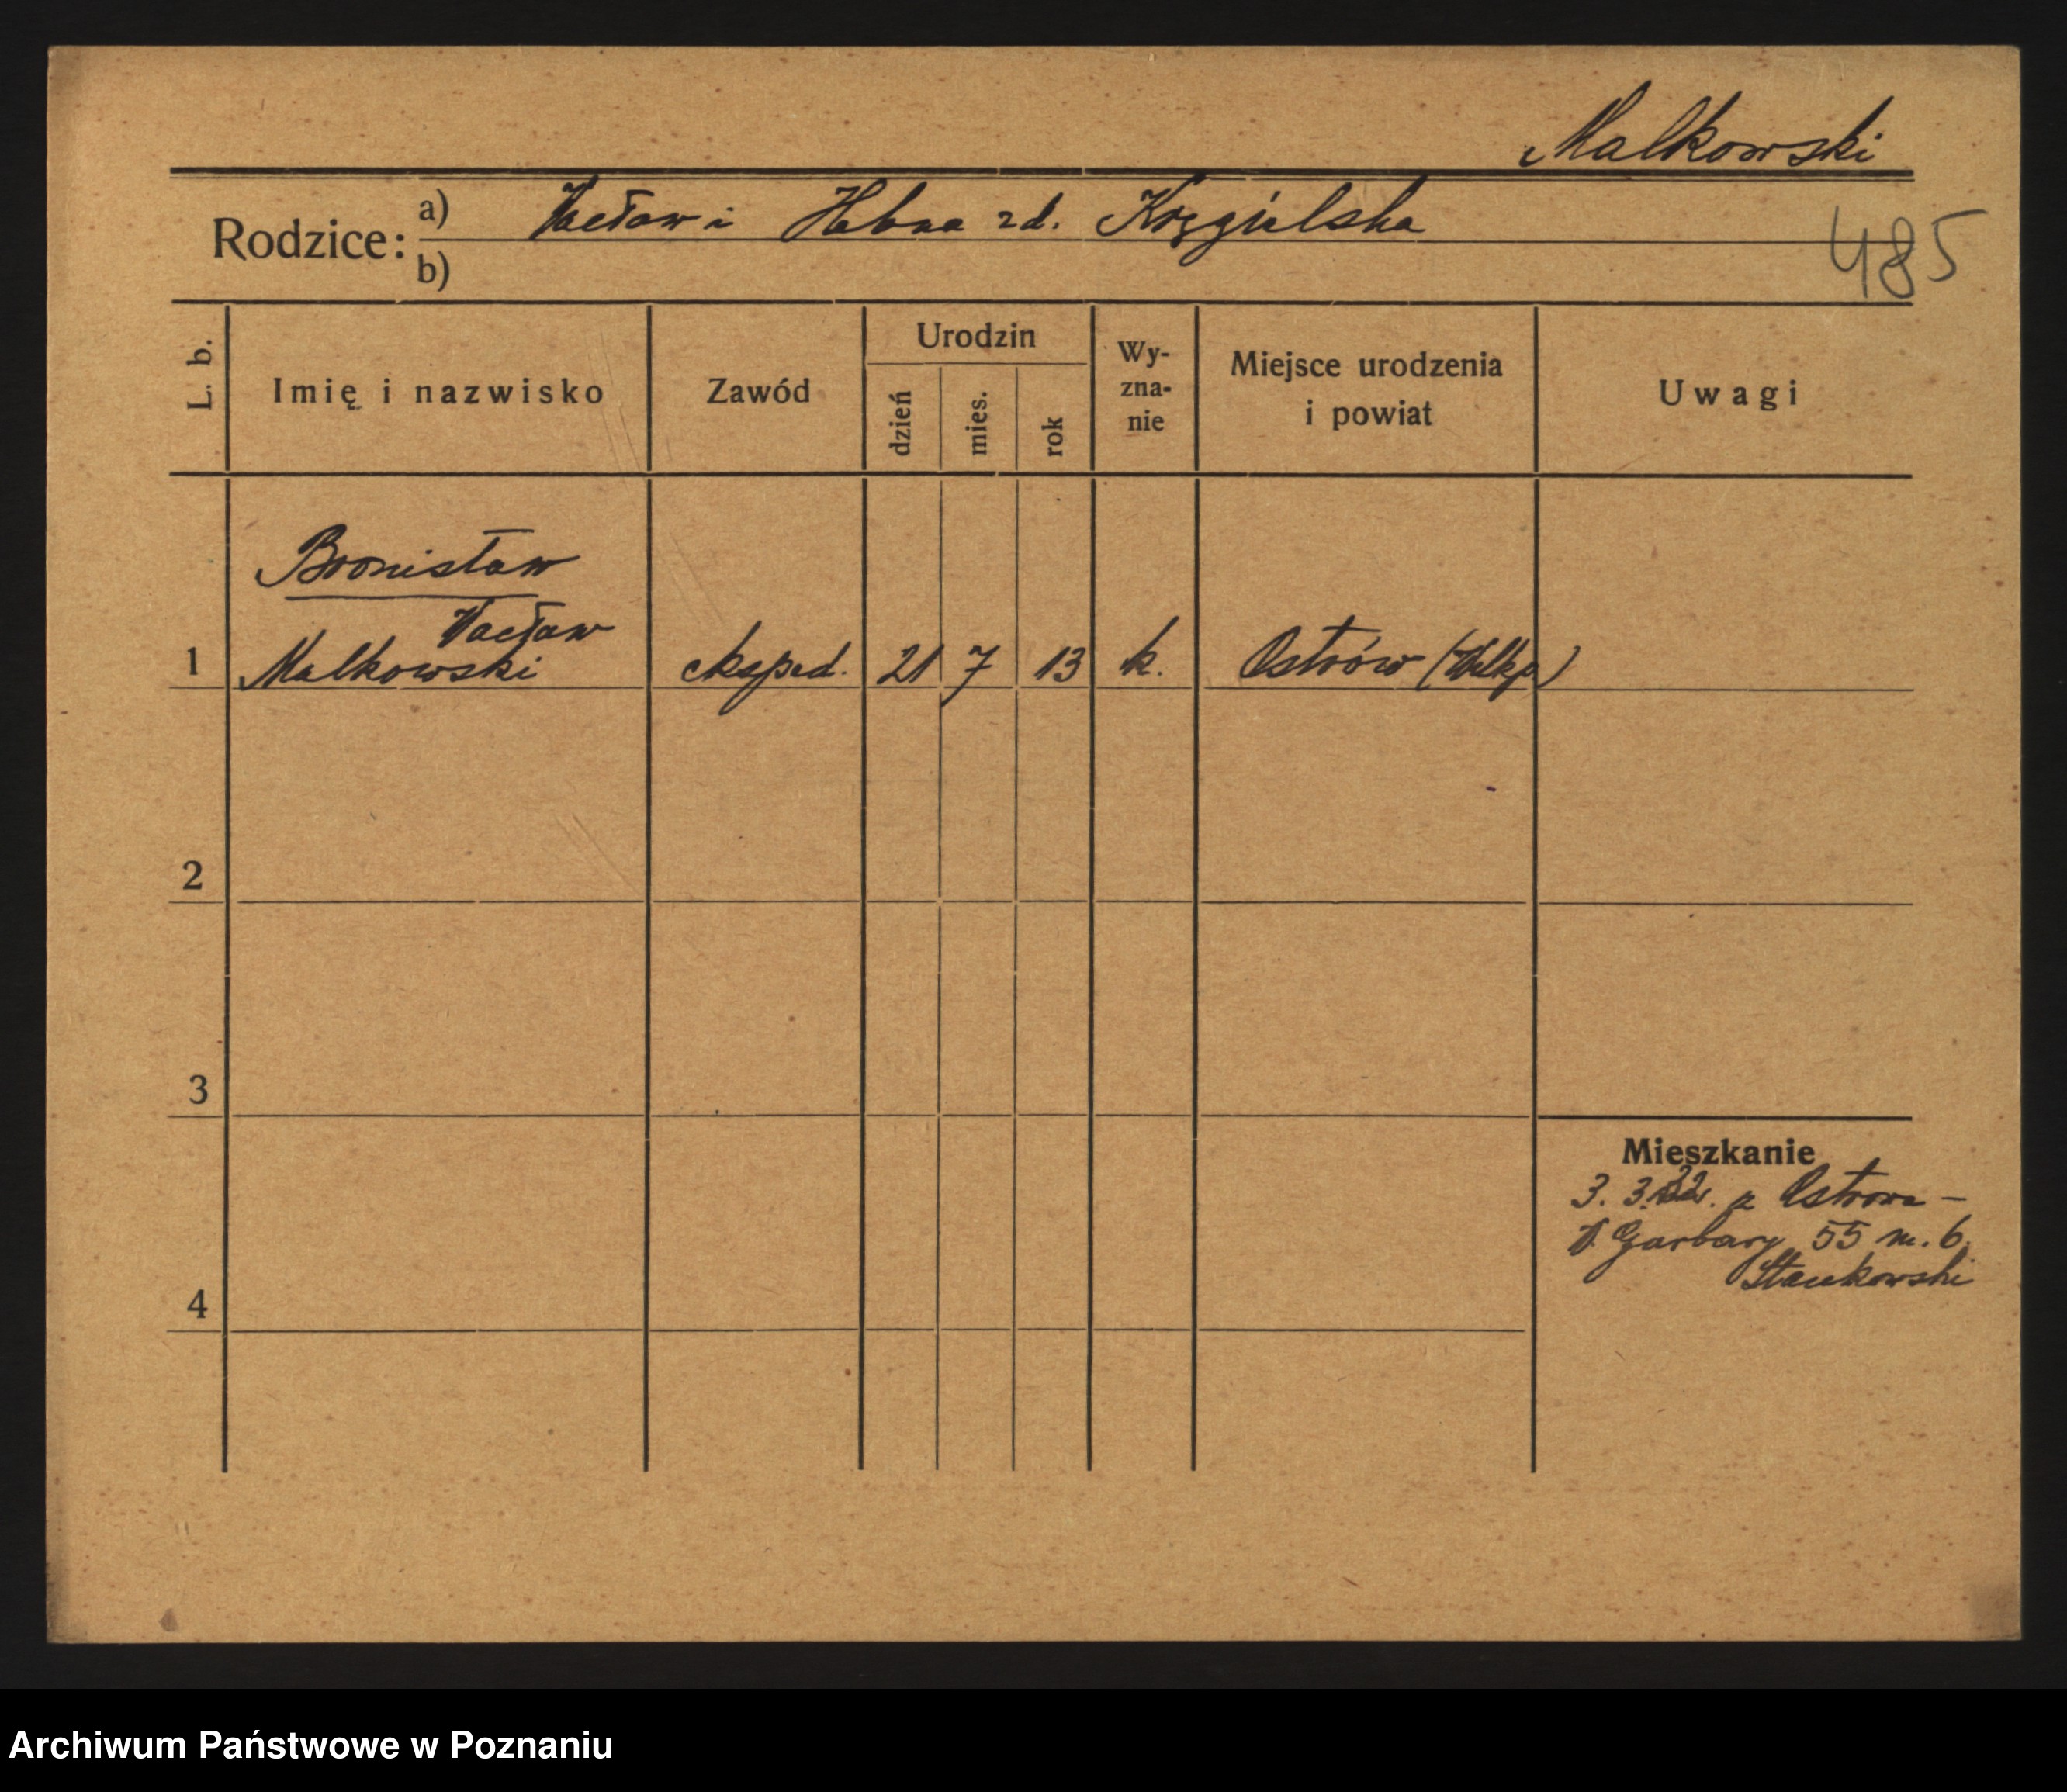 Malkowski
Rodzice: a) Wacław i Helena zd. Kręgielska
b)
485
L. b.
Imię i nazwisko
Zawód
Urodzin
dzień
mies.
rok
Wy-
zna-
nie
Miejsce urodzenia
i powiat
Uwagi
Bronisław
Wacław
1 Malkowski eksped. 21 7 13 k. Ostrów (Wlkp)
2
3
4
Mieszkanie
3. 3. 32. z Ostrowa –
W. Garbary 55 m. 6
Archiwum Państwowe w Poznaniu